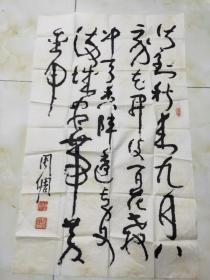 待到秋来九月八
我花开後百花杀
冲天香阵透长安
满城尽带黄
金甲
周倜